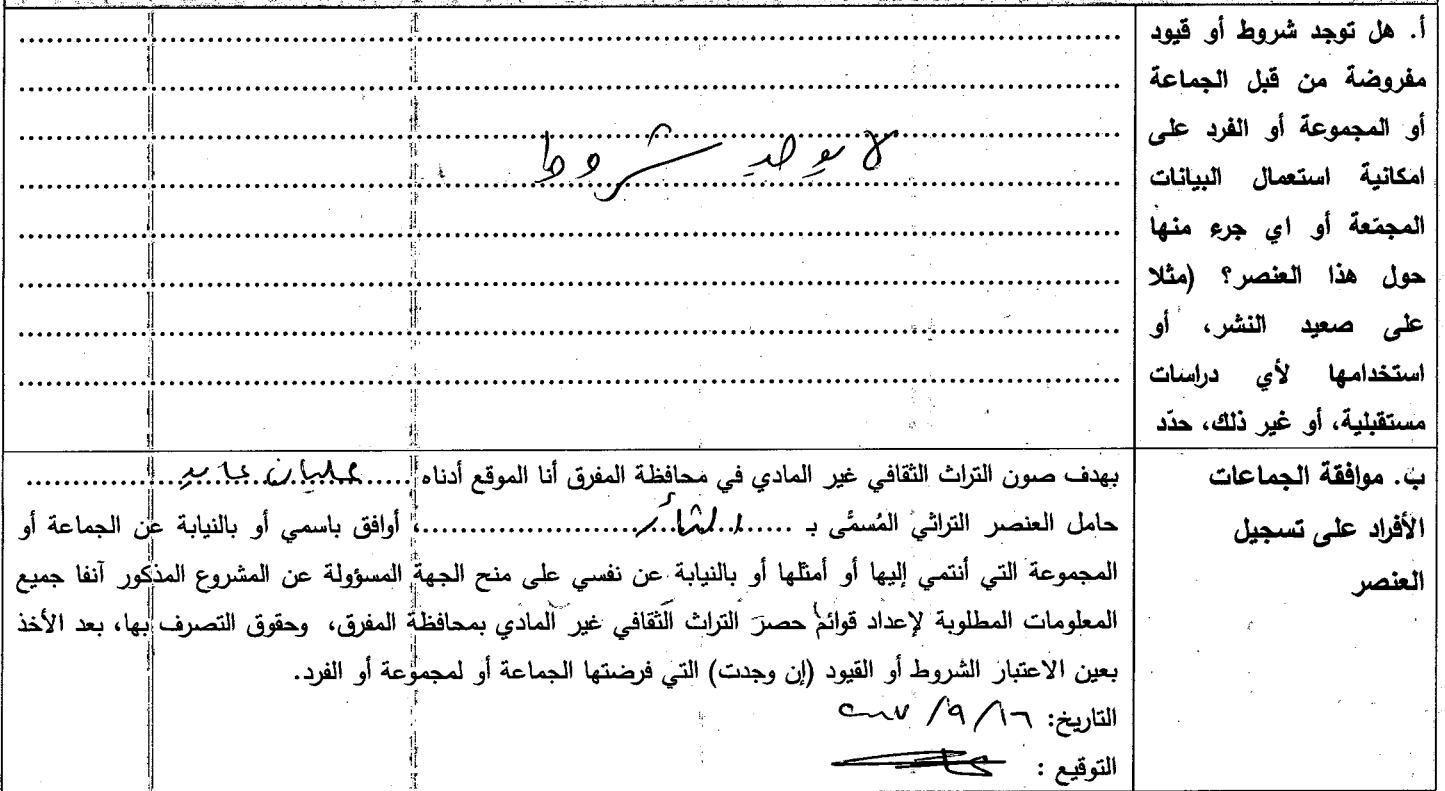 أ. هل توجد شروط أو قيود
مفروضة من قبل الجماعة
أو المجموعة أو الفرد على
امكانية استعمال البيانات
المجمّعة أو اي جرء منها
حول هذا العنصر؟ (مثلا
على صعيد النشر، أو
استخدامها لأي دراسات
مستقبلية، أو غير ذلك، حدّد
لا يوجد شروط
ب. موافقة الجماعات
الأفراد على تسجيل
العنصر
بهدف صون التراث الثقافي غير المادي في محافظة المفرق أنا الموقع أدناه ..... عليان عايد .....
حامل العنصر التراثي المُسمَّى ب ...... الثأر ......، أوافق باسمي أو بالنيابة عن الجماعة أو
المجموعة التي أنتمي إليها أو أمثلها أو بالنيابة عن نفسي على منح الجهة المسؤولة عن المشروع المذكور آنفا جميع
المعلومات المطلوبة لإعداد قوائم حصر التراث الثقافي غير المادي بمحافظة المفرق، وحقوق التصرف بها، بعد الأخذ
بعين الاعتبار الشروط أو القيود (إن وجدت) التي فرضتها الجماعة أو لمجموعة أو الفرد.
التاريخ: ١٦ / ٩ / ٢٠٠٧
التوقيع :